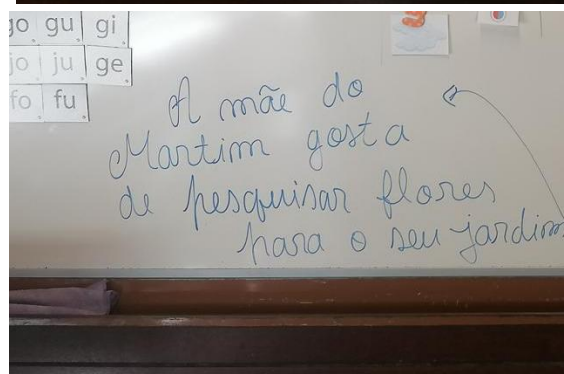 go gu gi
jo ju ge
fo fu
A mãe do
Martim gosta
de pesquisar flores
para o seu jardim